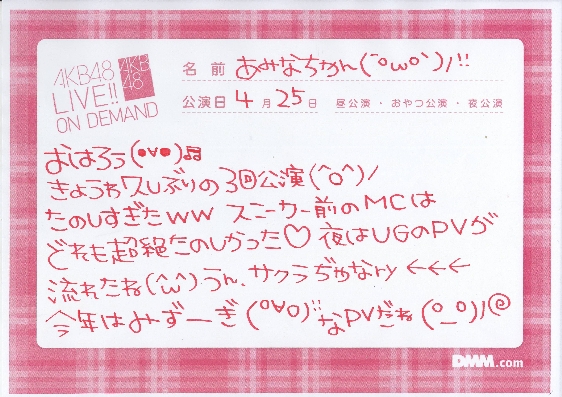 AKB48
LIVE!!
ON DEMAND
AKB
48
名前 あみなちゃん(´°ω°`)ﾉ!!
公演日 4月25日 昼公演・おやつ公演・夜公演
おはろぅ(●∀●)♫
きょうわ久しぶりの3回公演(^o^)/
たのしすぎたww スニーカー前のMCは
どれも超絶たのしかった♡ 夜はUGのPVが
流れたね(^ω^)うん、サクラぢゃなry ←←←
今年はみずーぎ(°∀°)!!なPVだね(°_°)ﾉ@
DMM.com